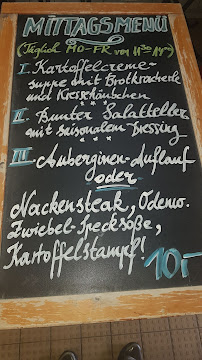 MITTAGSMENÜ
(Täglich MO-FR von 11³⁰
I. Kartoffelcreme-
suppe mit Brotkracherle
und Kresschäubchen
* * *
II. Bunter Salatteller
mit saisonalem Dressing
* * *
III. Auberginen-Auflauf
oder
Nackensteak, Odenw.
Zwiebel-Specksoße,
Kartoffelstampf! 10,-